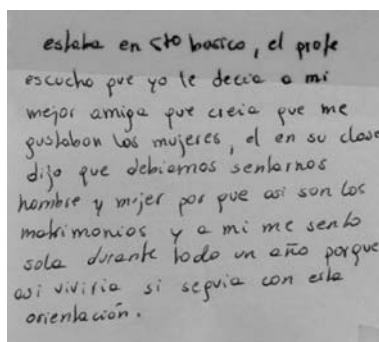 estaba en 5to basico, el profe
escucho que yo le decia a mi
mejor amiga que creia que me
gustaban las mujeres, el en su clase
dijo que debiamos sentarnos
hombre y mujer por que asi son los
matrimonios y a mi me sento
sola durante todo un año porque
asi viviria si seguia con esta
orientación.